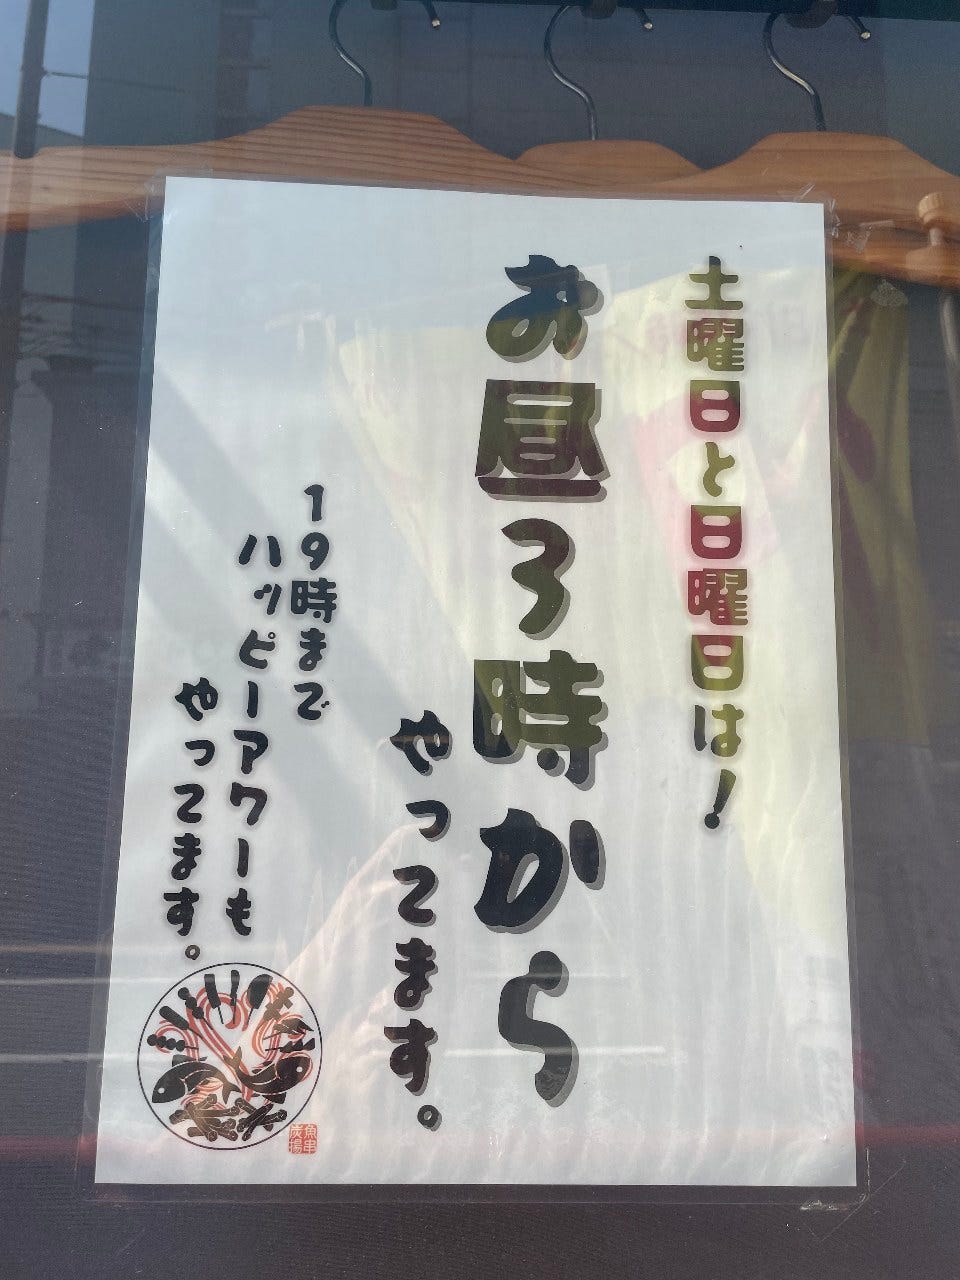 土曜日と日曜日は！
お昼３時から
やってます。
１９時まで
ハッピーアワーも
やってます。
魚串
炭揚